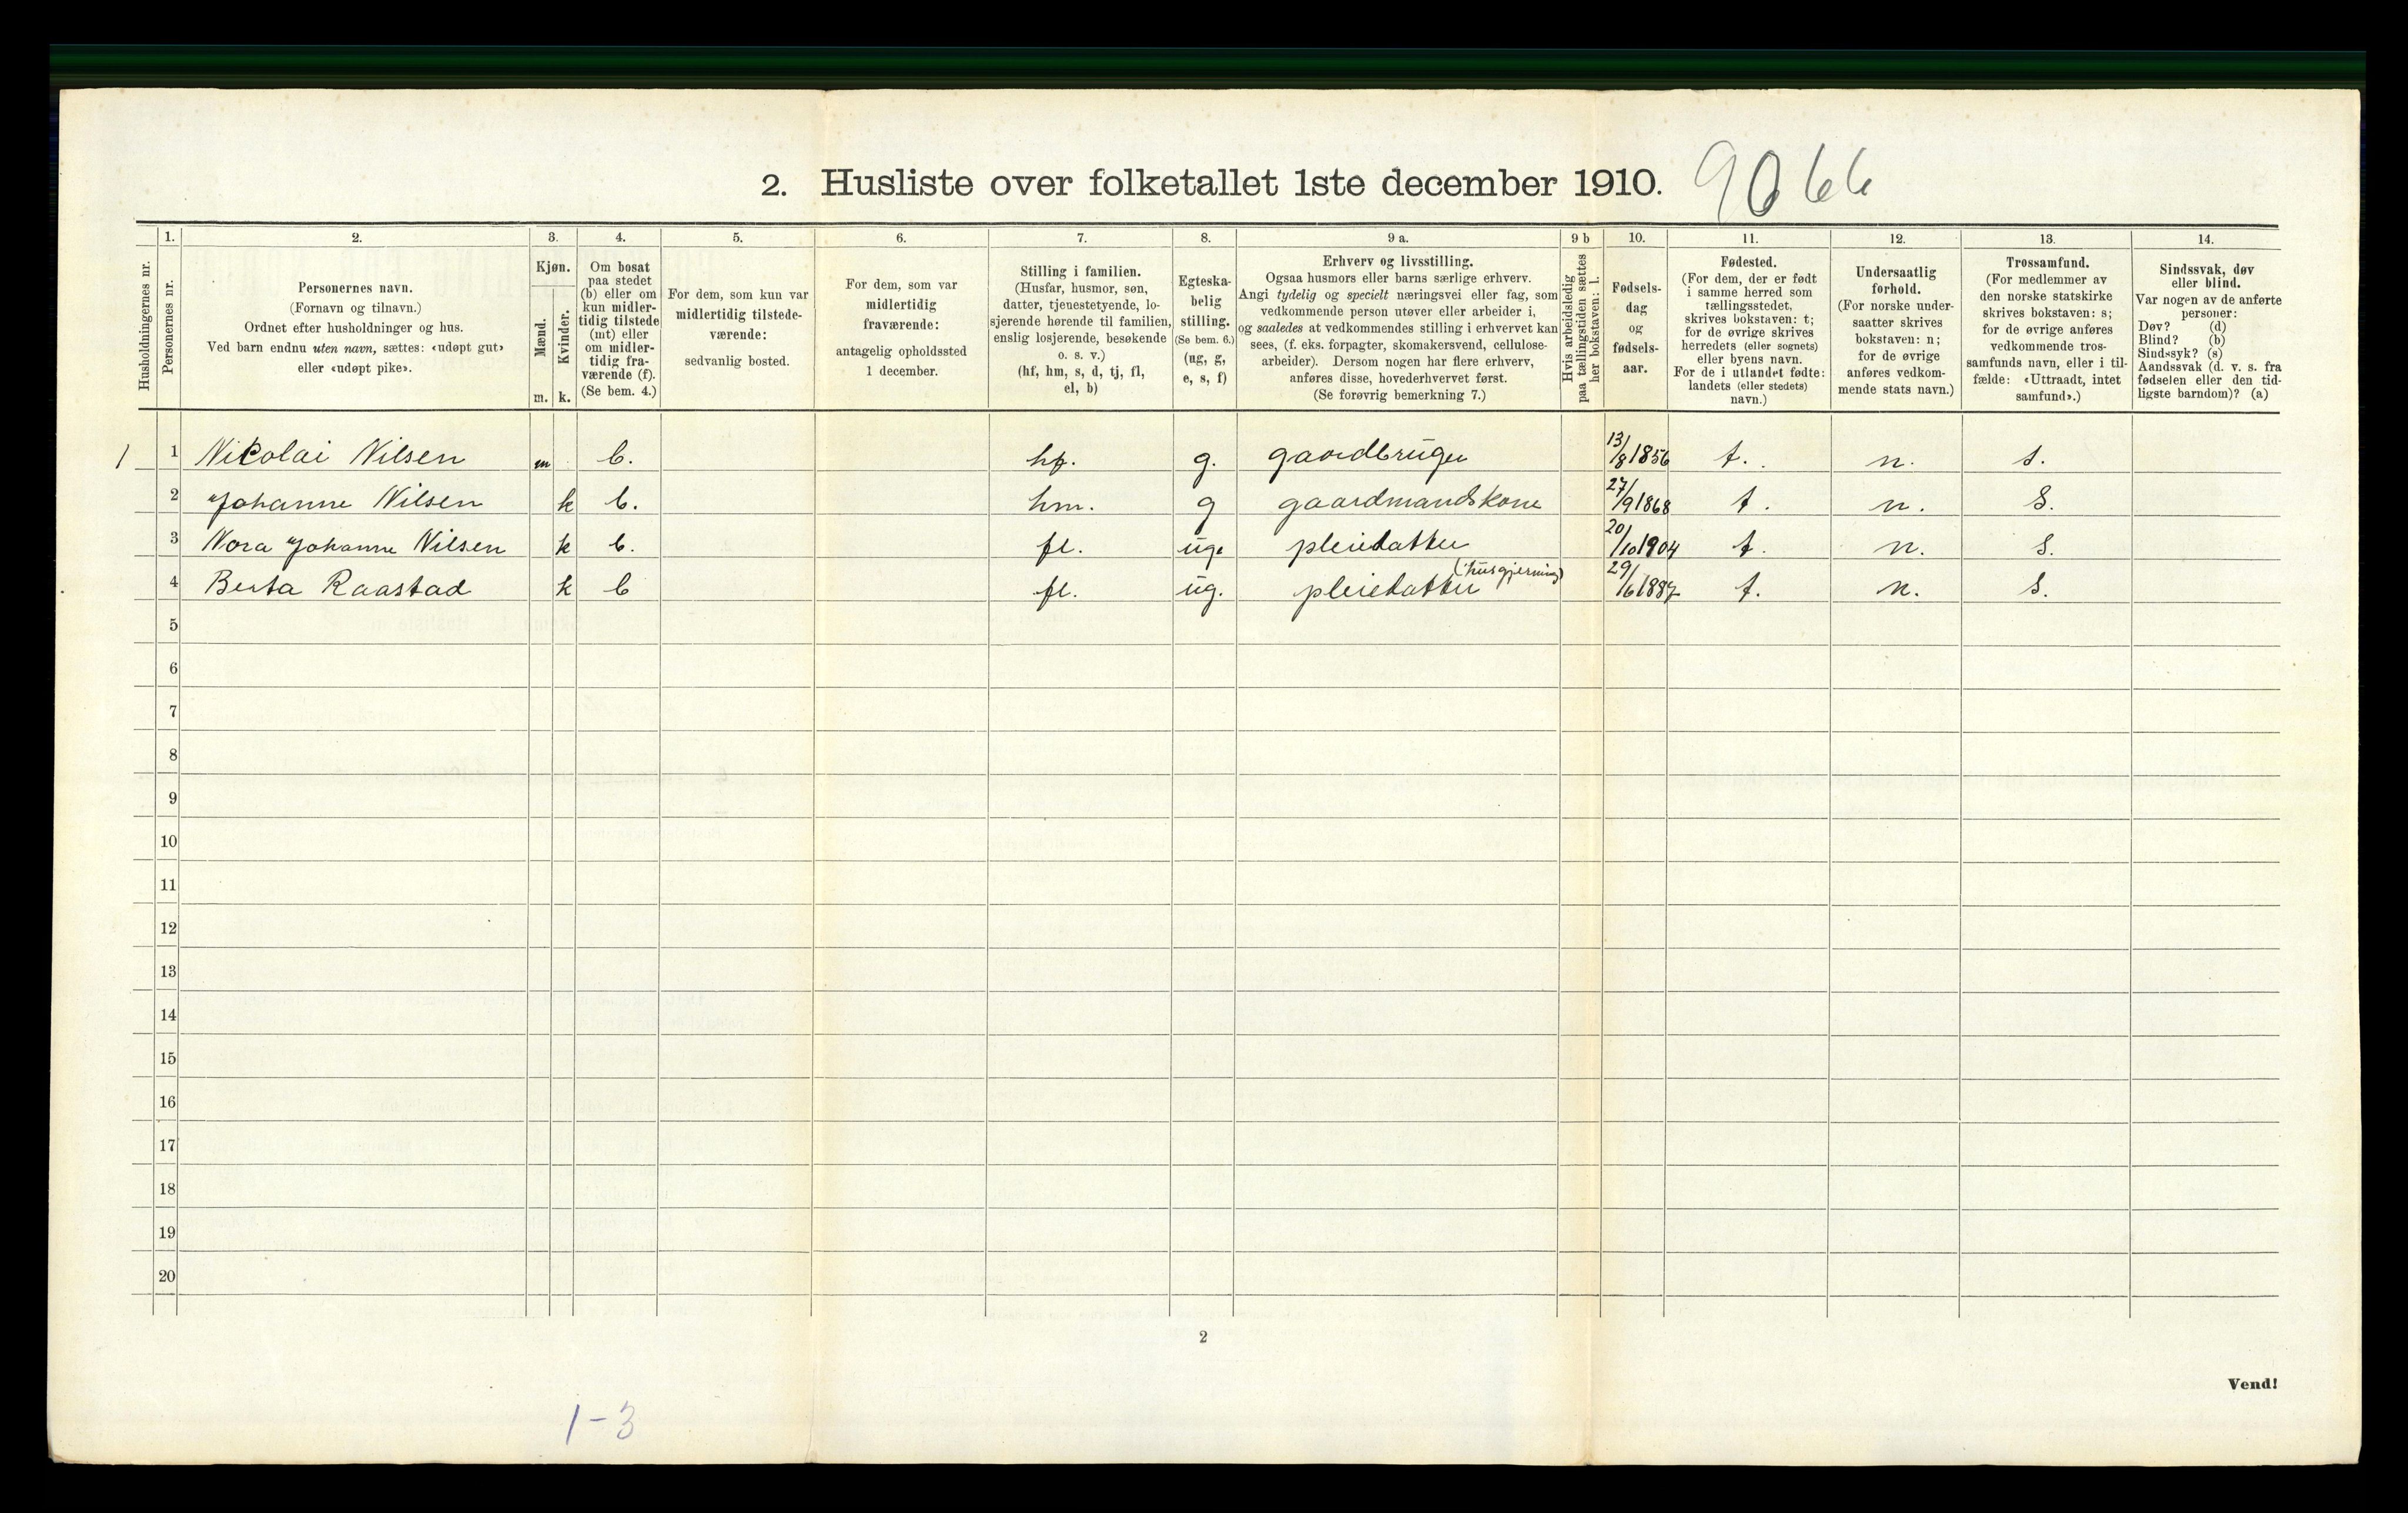 2. Husliste over folketallet 1ste december 1910. 9066
1. 2. 3. 4. 5. 6. 7. 8. 9 a. 9 b 10. 11. 12. 13. 14.
Husholdningernes nr.
Personernes nr.
Personernes navn.
(Fornavn og tilnavn.)
Ordnet efter husholdninger og hus.
Ved barn endnu uten navn, sættes: «udøpt gut»
eller «udøpt pike».
Kjøn.
Mænd.
Kvinder.
m. k.
Om bosat
paa stedet
(b) eller om
kun midler-
tidig tilstede
(mt) eller
om midler-
tidig fra-
værende (f).
(Se bem. 4.)
For dem, som kun var
midlertidig tilstede-
værende:
sedvanlig bosted.
For dem, som var
midlertidig
fraværende:
antagelig opholdssted
1 december.
Stilling i familien.
(Husfar, husmor, søn,
datter, tjenestetyende, lo-
sjerende hørende til familien,
enslig losjerende, besøkende
o. s. v.)
(hf, hm, s, d, tj, fl,
el, b)
Egteska-
belig
stilling.
(Se bem. 6.)
(ug, g,
e, s, f)
Erhverv og livsstilling.
Ogsaa husmors eller barns særlige erhverv.
Angi tydelig og specielt næringsvei eller fag, som
vedkommende person utøver eller arbeider i,
og saaledes at vedkommendes stilling i erhvervet kan
sees, (f. eks. forpagter, skomakersvend, cellulose-
arbeider). Dersom nogen har flere erhverv,
anføres disse, hovederhvervet først.
(Se forøvrig bemerkning 7.)
Hvis arbeidsledig
paa tællingstiden sættes
her bokstaven: l.
Fødsels-
dag
og
fødsels-
aar.
Fødested.
(For dem, der er født
i samme herred som
tællingsstedet,
skrives bokstaven: t;
for de øvrige skrives
herredets (eller sognets)
eller byens navn.
For de i utlandet fødte:
landets (eller stedets)
navn.)
Undersaatlig
forhold.
(For norske under-
saatter skrives
bokstaven: n;
for de øvrige
anføres vedkom-
mende stats navn.)
Trossamfund.
(For medlemmer av
den norske statskirke
skrives bokstaven: s;
for de øvrige anføres
vedkommende tros-
samfunds navn, eller i til-
fælde: «Uttraadt, intet
samfund».)
Sindssvak, døv
eller blind.
Var nogen av de anførte
personer:
Døv? (d)
Blind? (b)
Sindssyk? (s)
Aandssvak (d. v. s. fra
fødselen eller den tid-
ligste barndom)? (a)
1 1 Nicolai Nilsen m b. hf. g. gaardbruger 13/8 1856 t. n. s.
2 Johanne Nilsen k b. hm. g gaardmandskone 27/9 1868 t. n. S.
3 Nora Johanne Nilsen k b. fl. ug. pleiedatter 20/10 1904 t. n. S.
4 Berta Raastad k b fl. ug. pleiedatter (husgjerning) 29/6 1887 t. n. S.
5
6
7
8
9
10
11
12
13
14
15
16
17
18
19
20
2
Vend!
1-3